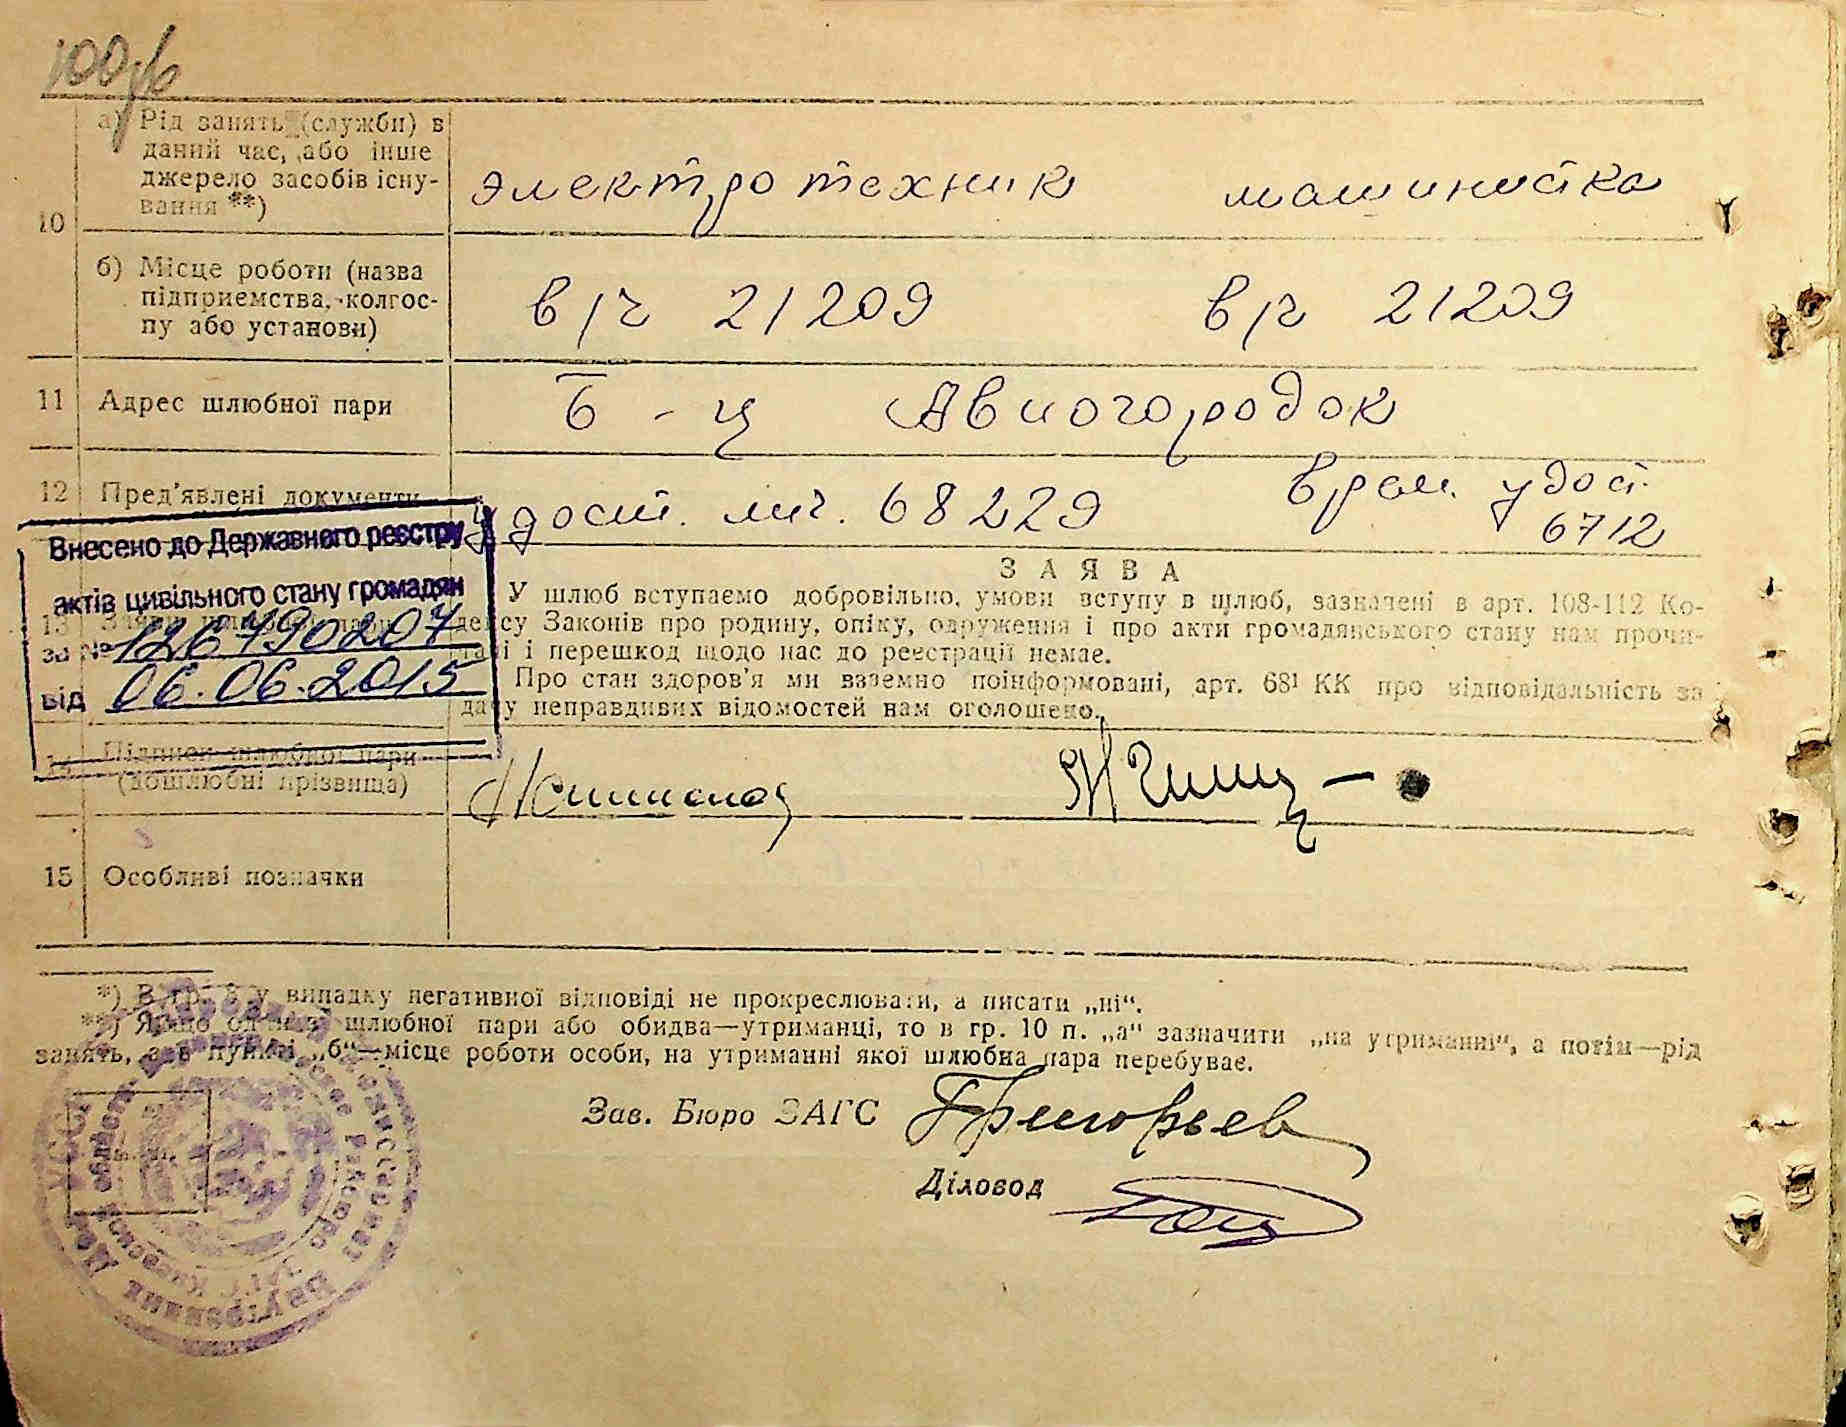 100
10
а) Рід занять (служби) в
даний час, або інше
джерело засобів існу-
вання **)
электротехник машинистка
б) Місце роботи (назва
підприємства, колгос-
пу або установи)
в/ч 21209 в/ч 21209
11 Адрес шлюбної пари
Б-ц Авиогородок
12 Пред'явлені документи
Удост. лич. 68229
врем. удост.
6712
Внесено до Державного реєстру
актів цивільного стану громадян
за № 126790207
від 06.06.2015
13
ЗАЯВА
У шлюб вступаємо добровільно, умови вступу в шлюб, зазначені в арт. 108-112 Ко-
дексу Законів про родину, опіку, одруження і про акти громадянського стану нам прочи-
тані і перешкод щодо нас до реєстрації немає.
Про стан здоров'я ми взаємно поінформовані, арт. 68¹ КК про відповідальність за
дачу неправдивих відомостей нам оголошено.
14 Підписи шлюбної пари
(дошлюбні прізвища)
15 Особливі позначки
*) В гр. 8 у випадку негативної відповіді не прокреслювати, а писати „ні“.
**) Якщо один із шлюбної пари або обидва—утриманці, то в гр. 10 п. „а“ зазначити „на утриманні“, а потім—рід
занять, а в пункті „б“—місце роботи особи, на утриманні якої шлюбна пара перебуває.
Зав. Бюро ЗАГС Григорьев
Діловод